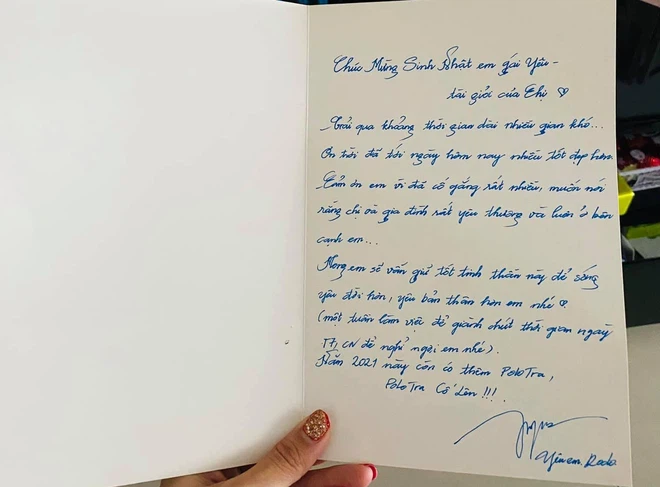 Chúc Mừng Sinh Nhật em gái yêu -
tài giỏi của Chị ♡
Trải qua khoảng thời gian dài nhiều gian khó...
Ơn trời đã tới ngày hôm nay nhiều tốt đẹp hơn.
Cảm ơn em vì đã cố gắng rất nhiều, muốn nói
rằng chị và gia đình rất yêu thương và luôn ở bên
cạnh em...
Mong em sẽ vẫn giữ tốt tinh thần này để sống
yêu đời hơn, yêu bản thân hơn em nhé ♡
(một tuần làm việc để giành chút thời gian ngày
T7, CN để nghỉ ngơi em nhé).
Năm 2021 này còn có thêm PoloTra,
PoloTra Cố Lên !!!
Yêu em,